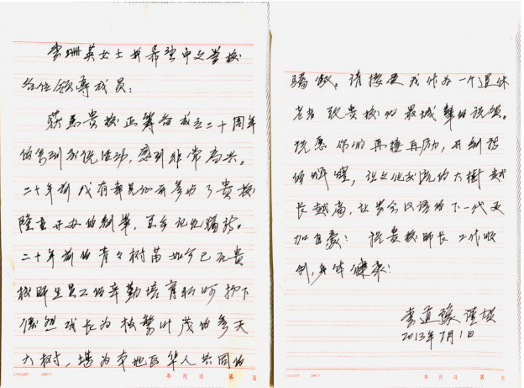 李珊英女士并希望中文学校
各位领导成员:
获悉贵校正筹备成立二十周年
的特别庆祝活动,感到非常高兴。
二十年前我有幸见证并参与了贵校
隆重开办的剪彩,至今记忆犹新。
二十年前的青青树苗如今已在贵
校师生员工的辛勤培育和呵护下
茂然成长为枝繁叶茂的参天
大树,堪为本地区华人共同的
骄傲。请接受我作为一个退休
老者致贵校的最诚挚的祝贺。
祝愿你们再接再励,再创新
的辉煌,让文化家园的大树越
长越高,让学会汉语的下一代更
加自豪!祝贵校师长工作顺
利,身体健康!
李道豫 谨启
2013年7月1日
年 月 日 第 页
年 月 日 第 页